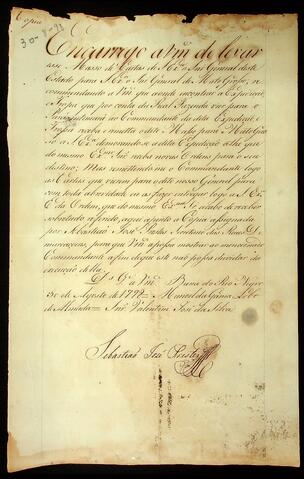 Copia
30-8-92
Encarrego a Vm de levar
este Masso de Cartas de S. Exª o Snr General deste
Estado para S. Exª o Snr General de Mato Grosso, re
commendando a Vm que onde encontrar a Expedição
e Tropa que por conta da Real Fazenda vier para o
ao Commandante da dita Expedição, e
Tropa receba e remetta este Masso para Mato Gros
so a S. Exª demorando-se a dita Expedição athe que
do mesmo Exmo Snr receba novas Ordens para o seu
destino; Mas remettendo-me o Commandante logo
as Cartas que vierem para este nosso General para
com toda a brevidade eu as faça
E da Ordem, que do mesmo Exmo Snr acabo de receber
sobre tudo referido, aqui ajunto a Copia assignada
por Sebastião José Prestes Secretario das Reaes De
marcaçoens, para que Vm a possa mostrar ao mencionado
Commandante a fim de que este não possa duvidar da
execução della.
Ds Gde a Vm Barra do Rio Negro
30 de Agosto de 1792 = Manoel da Gama Lobo
de Almada = Snr Valentim José da Silva
Sebastião José Prestes